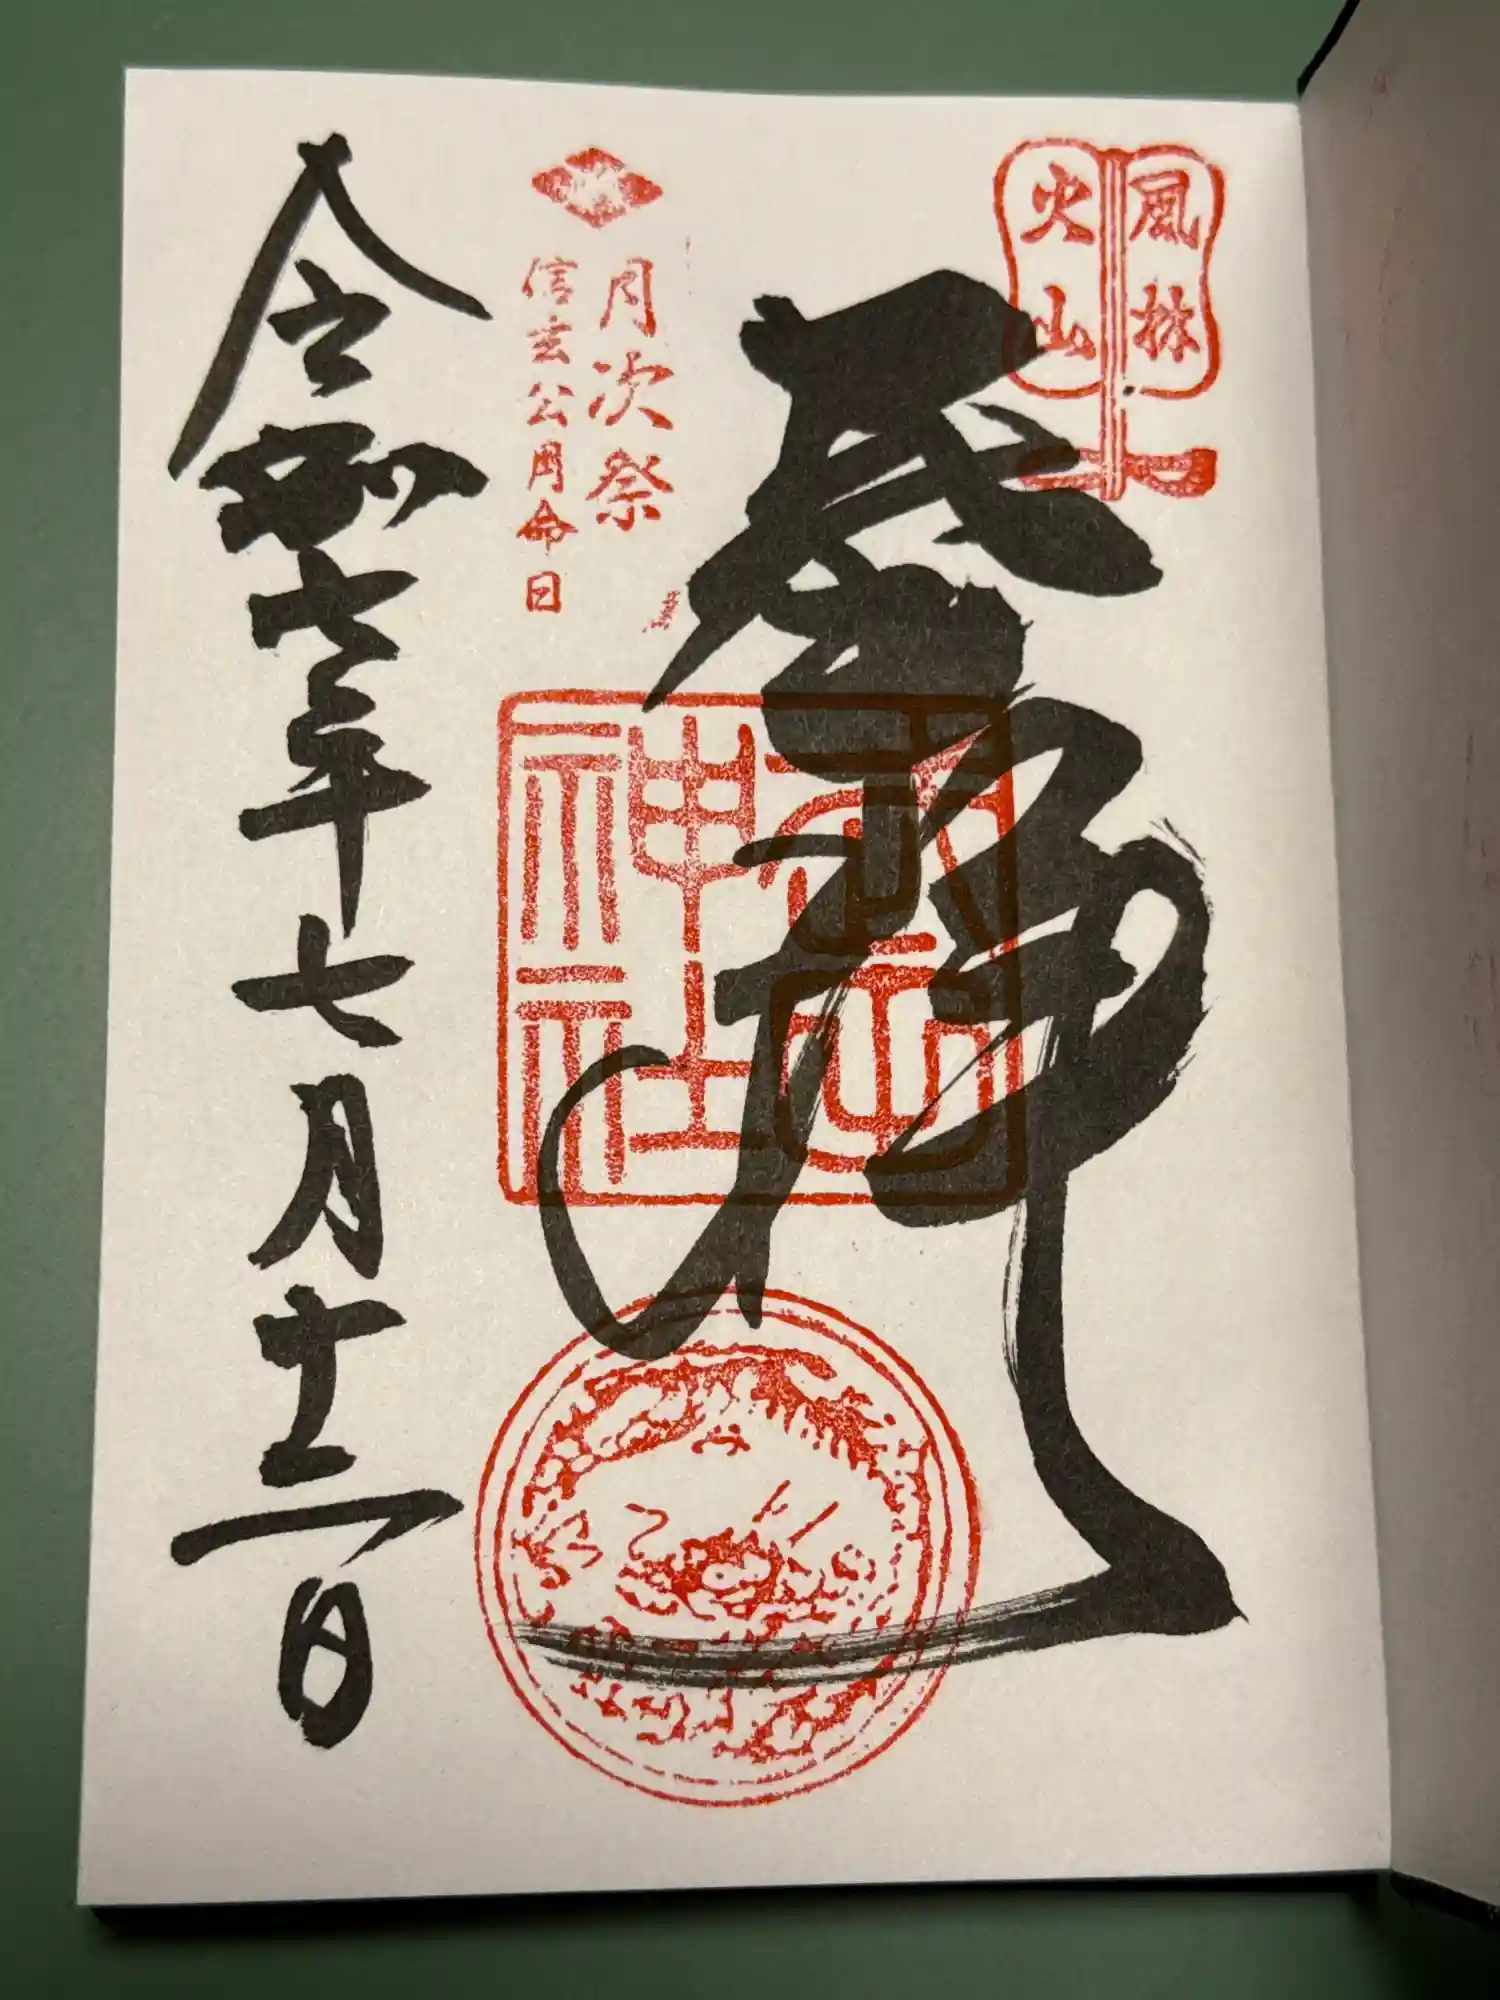 風林
火山
武田
神社
月次祭
信玄公月命日
令和七年七月十二日